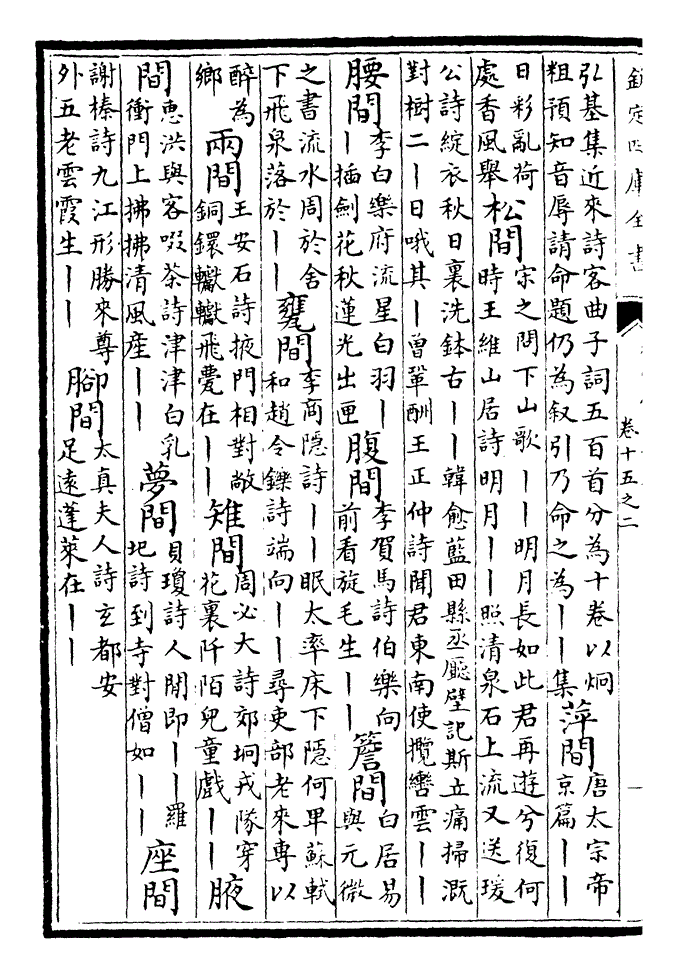 欽定四庫全書
卷十五之二
弘基集近來詩客曲子詞五百首分為十卷以炯粗預知音辱請命題仍為叙引乃命之為丨丨集萍間唐太宗帝京篇丨丨
日彩亂荷處香風舉松間宋之問下山歌丨丨明月長如此君再遊兮復何時王維山居詩明月丨丨照清泉石上流又送瑗
公詩綻衣秋日裏洗鉢古丨丨韓愈藍田縣丞廳壁記斯立痛掃溉對樹二丨日哦其丨曾鞏酬王正仲詩聞君東南使攬轡雲丨丨
腰間李白樂府流星白羽丨丨插劍花秋蓮光出匣腹間李賀馬詩伯樂向前看旋毛生丨丨簷間白居易與元微
之書流水周於舍下飛泉落於丨丨甕間李商隱詩丨丨眠太率床下隱何卑蘇軾和趙令鑠詩端向丨丨尋吏部老來專以
醉為鄉兩間王安石詩掖門相對敞銅鐶轣轆飛甍在丨丨雉間周必大詩郊坰戎隊穿花裏阡陌兒童戲丨丨腋
間惠洪與客啜茶詩津津白乳衝門上拂拂清風産丨丨夢間貝瓊詩人閒即丨丨羅圯詩到寺對僧如丨丨座間
謝榛詩九江形勝來尊外五老雲霞生丨丨脚間太真夫人詩玄都安足遠蓬萊在丨丨